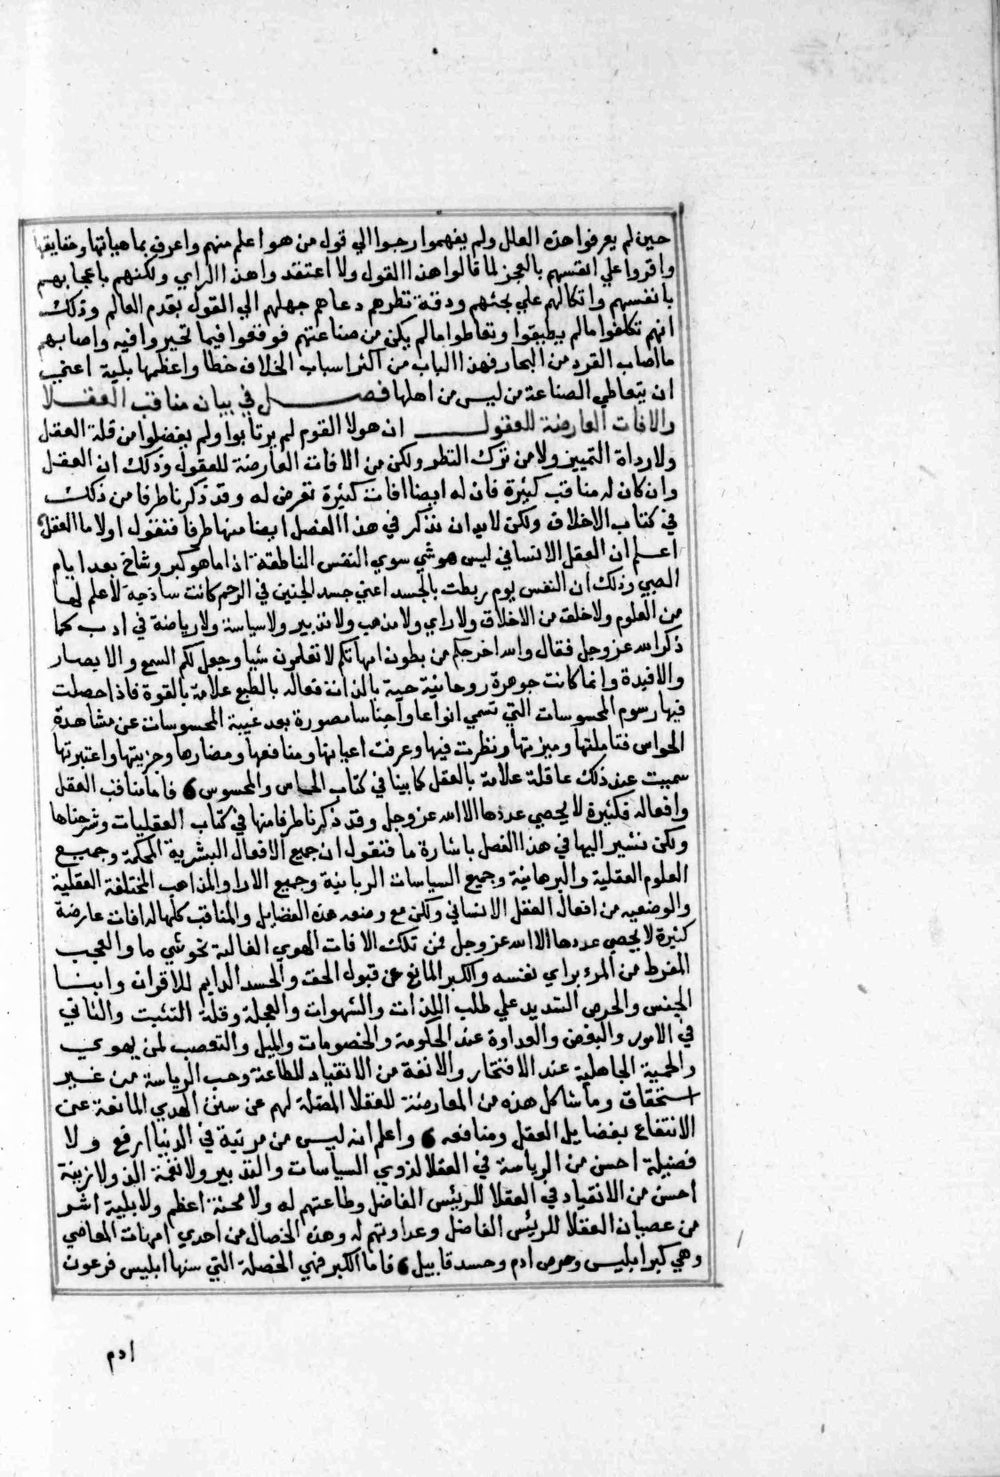 حين لم يعرفوا هذه العلل ولم يفهموا رجوا الي قول من هو اعلم منهم واعرف بماهياتها وحقايقها
واقروا علي انفسهم بالعجز لما قالوا هذا القول ولا اعتقد واهذا الراي ولكنهم باعجابهم
بانفسهم واتكالهم علي بحثهم ودقة نظرهم دعاهم جهلهم الي القول بقدم العالم وذلك
انهم تكلفوا مالم يطيقوا وتعاطوا مالم يكن من صناعتهم فوقعوا فيما تحيروا فيه واصابهم
ما اصاب القرد من البحار فهذا الباب من اكثر اسباب الخلاف خطا واعظمها بلية اعني
ان يتعاطي الصناعة من ليس من اهلها فصل في بيان مناقب العقل
والافات العارضة للعقول ان هولا القوم لم يرتابوا ولم يفضلوا من قلة العقل
ولا رداة التمييز ولا من ترك النظر ولكن من الافات العارضة للعقول وذلك ان العقل
وان كان له مناقب كثيرة فان له ايضا افات كثيرة تعرض له وقد ذكرنا طرفا من ذلك
في كتاب الاخلاق ولكن لا بد ان نذكر في هذا الفصل ايضا منها طرفا فنقول اولا ما العقل
اعلم ان العقل الانساني ليس هو شي سوي النفس الناطقة اذا ما هو كبر وشاخ بعد ايام
الصبي وذلك ان النفس يوم ربطت بالجسد اعني جسد الجنين في الرحم كانت ساذجة لا علم لها
من العلوم ولا خلق من الاخلاق ولا راي ولا مذهب ولا تدبير ولا سياسة ولا رياضة في ادب كما
ذكر الله عز وجل فقال والله اخرجكم من بطون امهاتكم لا تعلمون شيا وجعل لكم السمع والابصار
والافيدة وانما كانت جوهرة روحانية حية بالذات فعالة بالطبع علامة بالقوة فاذا حصلت
فيها رسوم المحسوسات التي تسمي انواعا واجناسا مصورة بعد غيبة المحسوسات عن مشاهدة
الحواس فتاملتها وميزتها ونظرت فيها وعرفت اعيانها ومنافعها ومضارها وجربتها واعتبرتها
سميت عند ذلك عاقلة علامة بالعقل كما بينا في كتاب الحاس والمحسوس 6 فاما مناقب العقل
وافعاله فكثيرة لا يحصي عددها الا الله عز وجل وقد ذكرنا طرفا منها في كتاب العقليات وشرحناها
ولكن نشير اليها في هذا الفصل باشارة ما فنقول ان جميع الافعال البشرية المحكمة وجميع
العلوم العقلية والبرهانية وجميع السياسات الربانية وجميع الارا والمذاهب المختلفة العقلية
والوضعيه من افعال العقل الانساني ولكن مع وصفه هذه الفضايل والمناقب كلها له افات عارضة
كثيرة لا يحصي عددها الا الله عز وجل فمن تلك الافات الهوي الغالة نحو شي ما والعجب
المفرط من المرء براي نفسه والكبر المانع عن قبول الحق والحسد الدايم للاقران وابنا
الجنس والحرص الشديد علي طلب اللذات والشهوات والعجلة وقلة التثبت والتاني
في الامور والبغض والعداوة عند الحكومة والخصومات والميل والتعصب لمن يهوي
والحمية الجاهلية عند الافتخار والانفة من الانقياد للطاعة وحب الرياسة من غير
استحقاق وما شاكل هذه من المعارضة للعقلا المضلة لهم عن سنن الهدي المانعة عن
الانتفاع بفضايل العقل ومنافعه 6 واعلم انه ليس من مرتبة في الدنيا ارفع ولا
فضيلة احسن من الرياسة في العقلا لذوي السياسات والتدبير ولا نعمة الذ ولا زينة
احسن من الانقياد في العقلا للرييس الفاضل وطاعتهم له ولا محنة اعظم ولا بلية اشر
من عصيان العقلا للرئيس الفاضل وعداوتهم له وهذه الخصال من احدي امهات المعاصي
وهي كبر ابليس وحرص ادم وحسد قابيل 6 فاما الكبر فهي الخصلة التي سنها ابليس فرعون
ادم